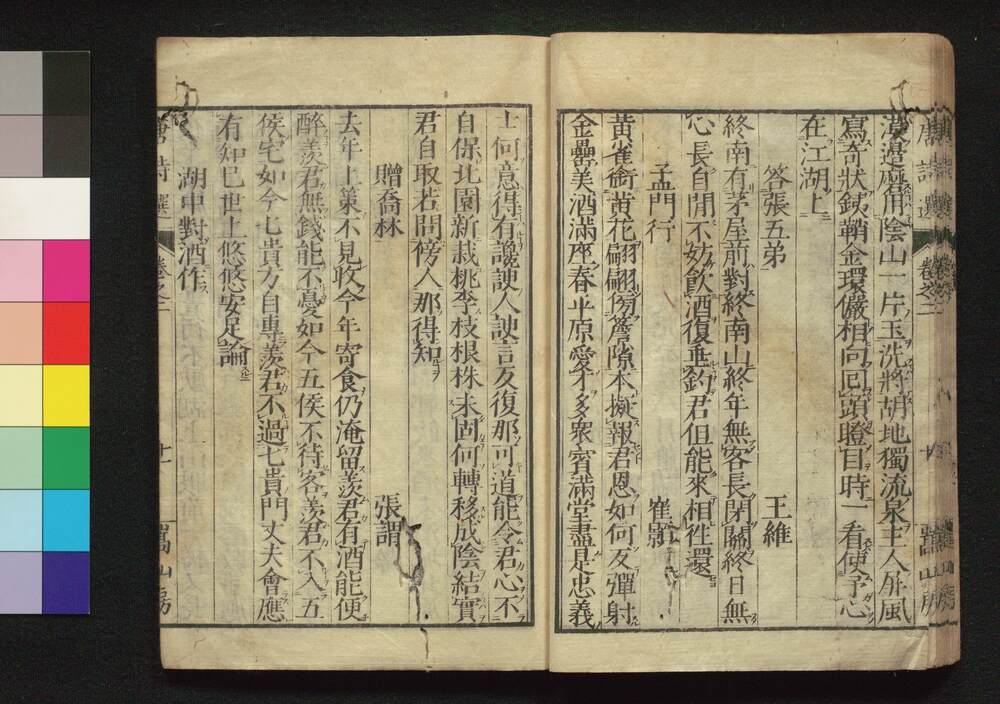 漠邊磨用陰山一片玉洗將胡地獨流泉主人屏風
寫奇狀鐵鞘金環儼相向回頭瞪目時一看使予心
在江湖上
答張五弟 王維
終南有茅屋前對終南山終年無客長閉關終日無
心長自閒不妨飲酒復垂釣君但能來相往還
孟門行 崔顥
黃雀銜黃花翩翩傍簷隙本擬報君恩如何反彈射
金罍美酒滿座春平原愛才多衆賓滿堂盡是忠義
士何意得有讒諛人諛言反復那可道能令君心不
自保北園新栽桃李枝根株未固何轉移成陰結實
君自取若問傍人那得知
贈喬林 張謂
去年上策不見收今年寄食仍淹留羨君有酒能便
醉羨君無錢能不憂如今五侯不待客羨君不入五
侯宅如今七貴方自專羨君不過七貴門丈夫會應
有知己世上悠悠安足論
湖中對酒作
唐詩選 卷之二 十一 嵩山房